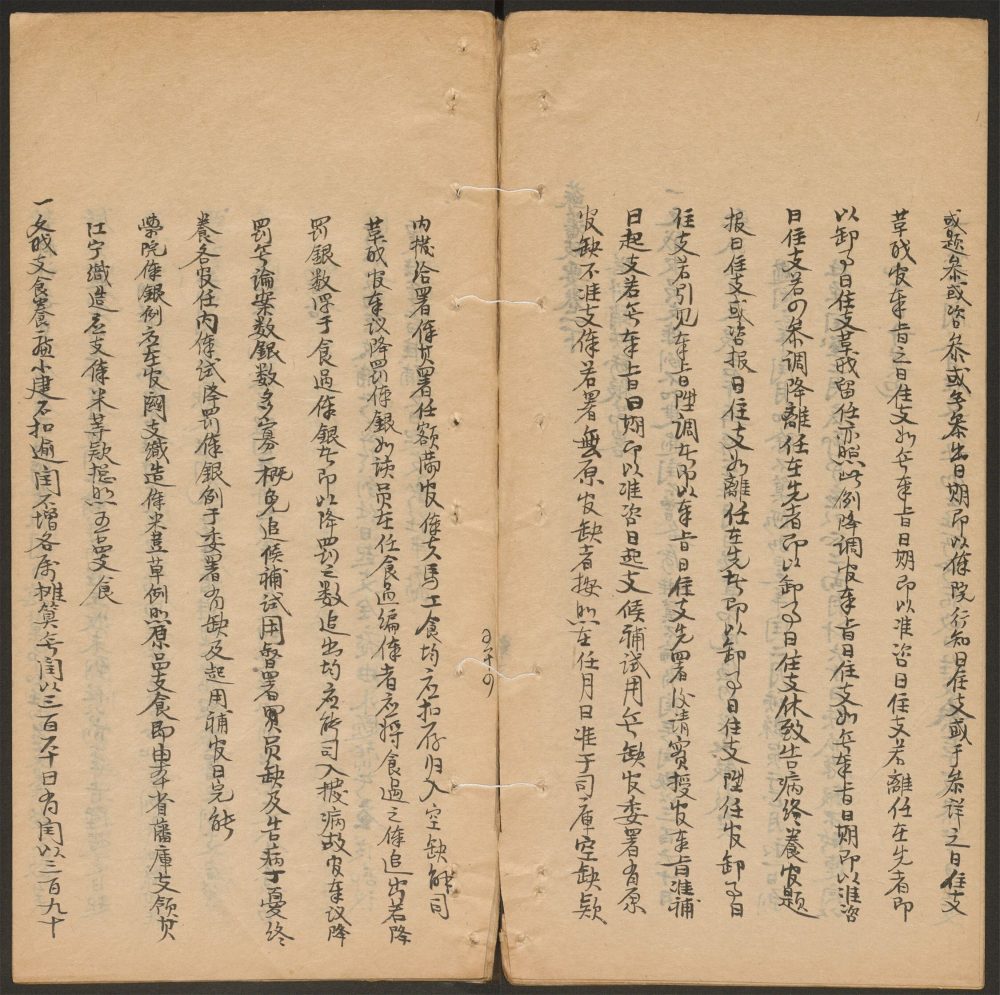 或題参或咨参或無参出日期即以俸院行知日住支或于参詳之日住支
革職官奉旨之日住支如無奉旨日期即以准咨日住支若離任在先者即
以卸事日住支革職留任亦照此例降調官奉旨日住支如無奉旨日期即以准咨
日住支若參調降離任在先者即以卸事日住支休致告病終養官題
报日住支或咨报日住支如離任在先者即以卸事日住支陞任官卸事日
住支若引見奉旨陞調者即以奉旨日住支先署後請實授官奉旨准補
日起支若無奉旨日期即以准咨日起支候補試用無缺官委署有原
官缺不准支俸若署無原官缺者按照在任月日准于司庫空缺款
内撥給署俸其署任額滿官俸夫馬工食均应扣存归入空缺解司
革職官奉议降罰俸銀如該员在任食過編俸者应将食過之俸追出若降
罰銀数浮于食過俸銀者即以降罰之数追出均应解司入撥病故官奉议降
罰無論案数銀数多寡一概免追候補試用督署買员缺及告病丁憂終
養各官任内俸試降罰俸銀例于委署有缺及起用補官日完解
學院俸銀例应在官闕支織造俸米荳草例照原品支食即由本省藩庫支領其
江宁織造应支俸米等款揔照五品支食
一文職支食養廉小建不扣逾闰不增各属摊算無闰以三百六十日有闰以三百九十